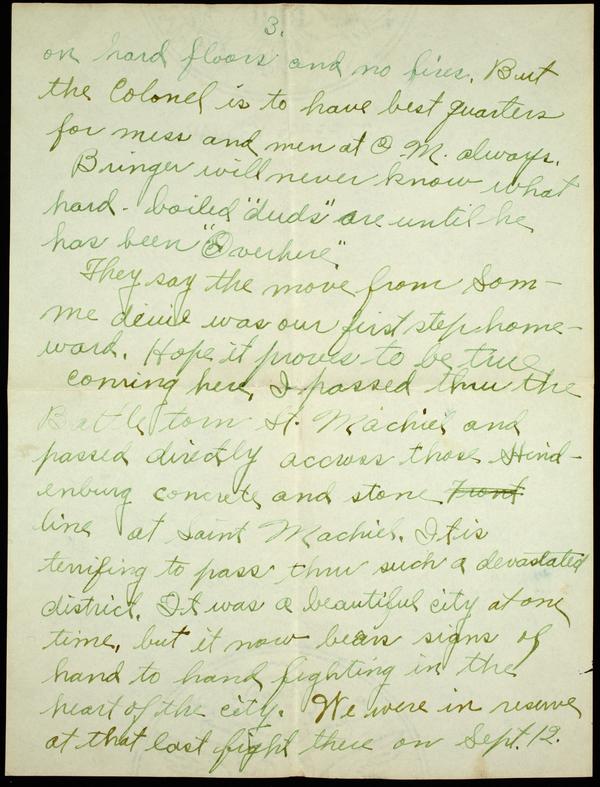 3.
on hard floors and no fires. But
the Colonel is to have best quarters
for mess and men at O.M. always.
Bringer will never know what
hard-boiled "duds" are until he
has been "Overhere."
They say the move from Som-
me deiue was our first step home-
ward. Hope it proves to be true
Coming here, I passed thru the
Battle torn St. Machiel and
passed directly accross those Hind-
enburg concrete and stone front
line at Saint Machiel. It is
terrifing to pass thru such a devastated
district. It was a beautiful city at one
time, but it now bears signs of
hand to hand fighting in the
heart of the city. We were in reserve
at that last fight there on Sept. 12.